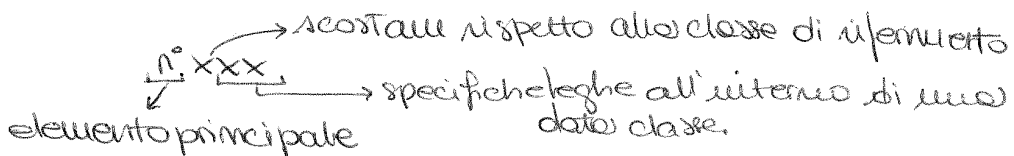 scostam rispetto alla classe di riferimento
n° xxx
specifiche leghe all'interno di una
data classe.
elemento principale